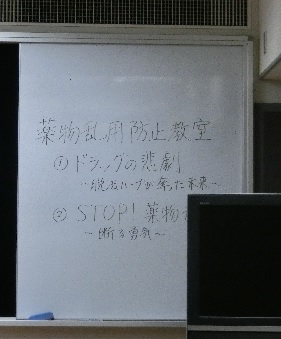 薬物乱用防止教室
① ドラッグの悲劇
~脱法ハーブが奪った未来~
② STOP! 薬物
~断る勇気~